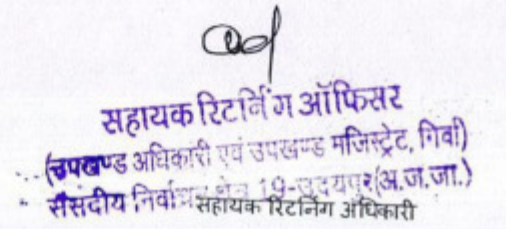 सहायक रिटर्निंग ऑफिसर
(उपखण्ड अधिकारी एवं उपखण्ड मजिस्ट्रेट, गिर्वा)
संसदीय निर्वाचन क्षेत्र 19-उदयपुर(अ.ज.जा.)
सहायक रिटर्निंग अधिकारी